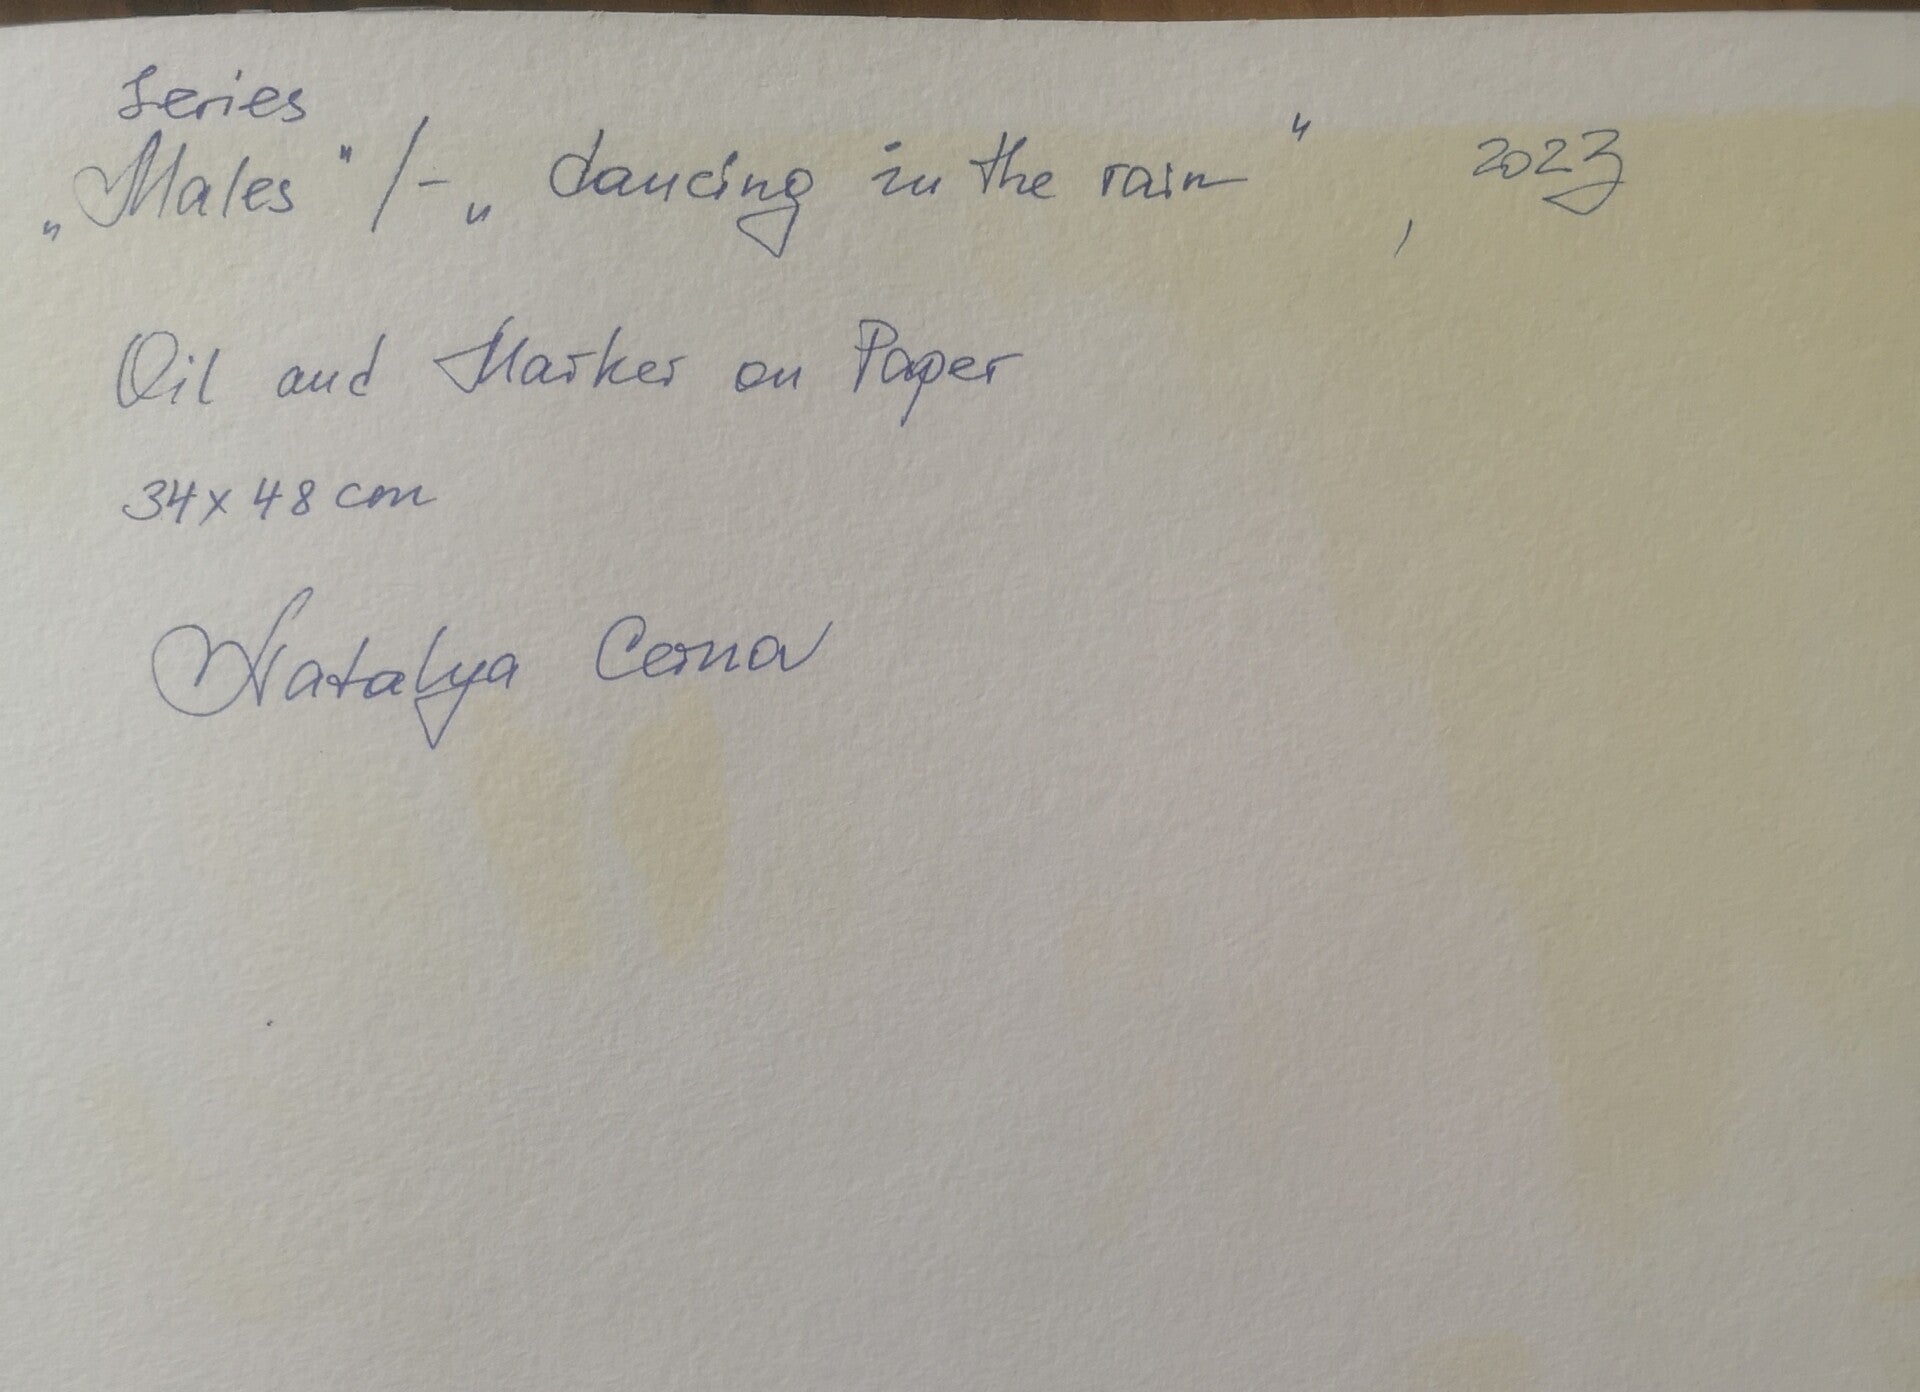 Series
„Males" /- „dancing in the rain", 2023
Oil and Marker on Paper
34x48 cm
Natalya Cerna